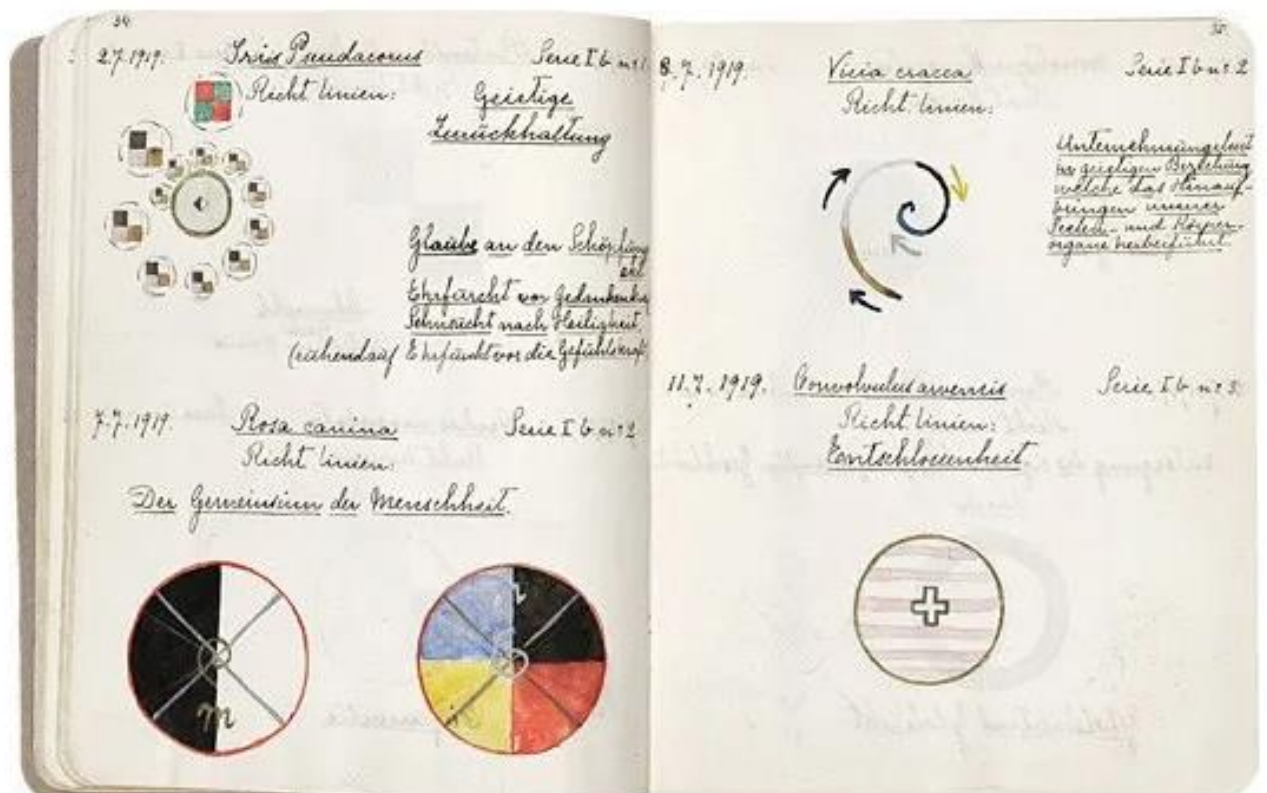 34
2.7.1919. Iris Pseudacorus Serie I b. nr 1.
Richt linien: Geistige
Zurückhaltung
Glaube an den Schöpfung
Ehrfurcht vor
Sehnsucht nach Heiligkeit
(ruhend auf Ehrfurcht vor die Gefühlskraft
7.7.1919. Rosa canina Serie I b nr 2
Richt linien:
Der Gemeinsinn der Menschheit.
8.7.1919. Vicia cracca Serie I b nr 2
Richt linien:
Unternehmungslust
in geistigen Beziehung
welche das Hinauf-
bringen unserer
Seelen- und Körper-
organe herbeiführt.
11.7.1919. Convolvulus arvensis Serie I b. nr 3.
Richt linien:
Entschlossenheit